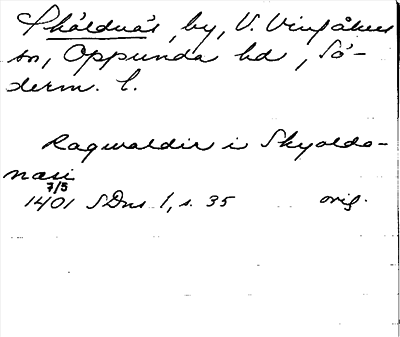 Skáldnäs, by, V. Vingåkers
sn, Oppunda hd, Sö-
derm. l.
Ragwaldir i Skyoldo-
næsi
7/5
1401 SDns 1, s. 35 orig.